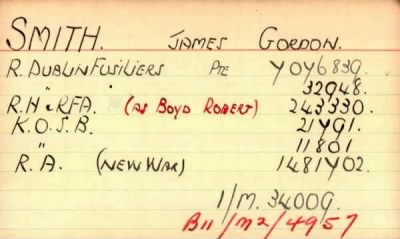 SMITH. JAMES GORDON.
R. DUBLIN FUSILIERS Pte 7076839.
" 32048.
R.H & RFA. (AS BOYD ROBERT) 243330.
K.O.S.B. 21791.
" 11801
R.A. (NEW WAR) 1481702.
1/M. 34009.
B11/M2/4957